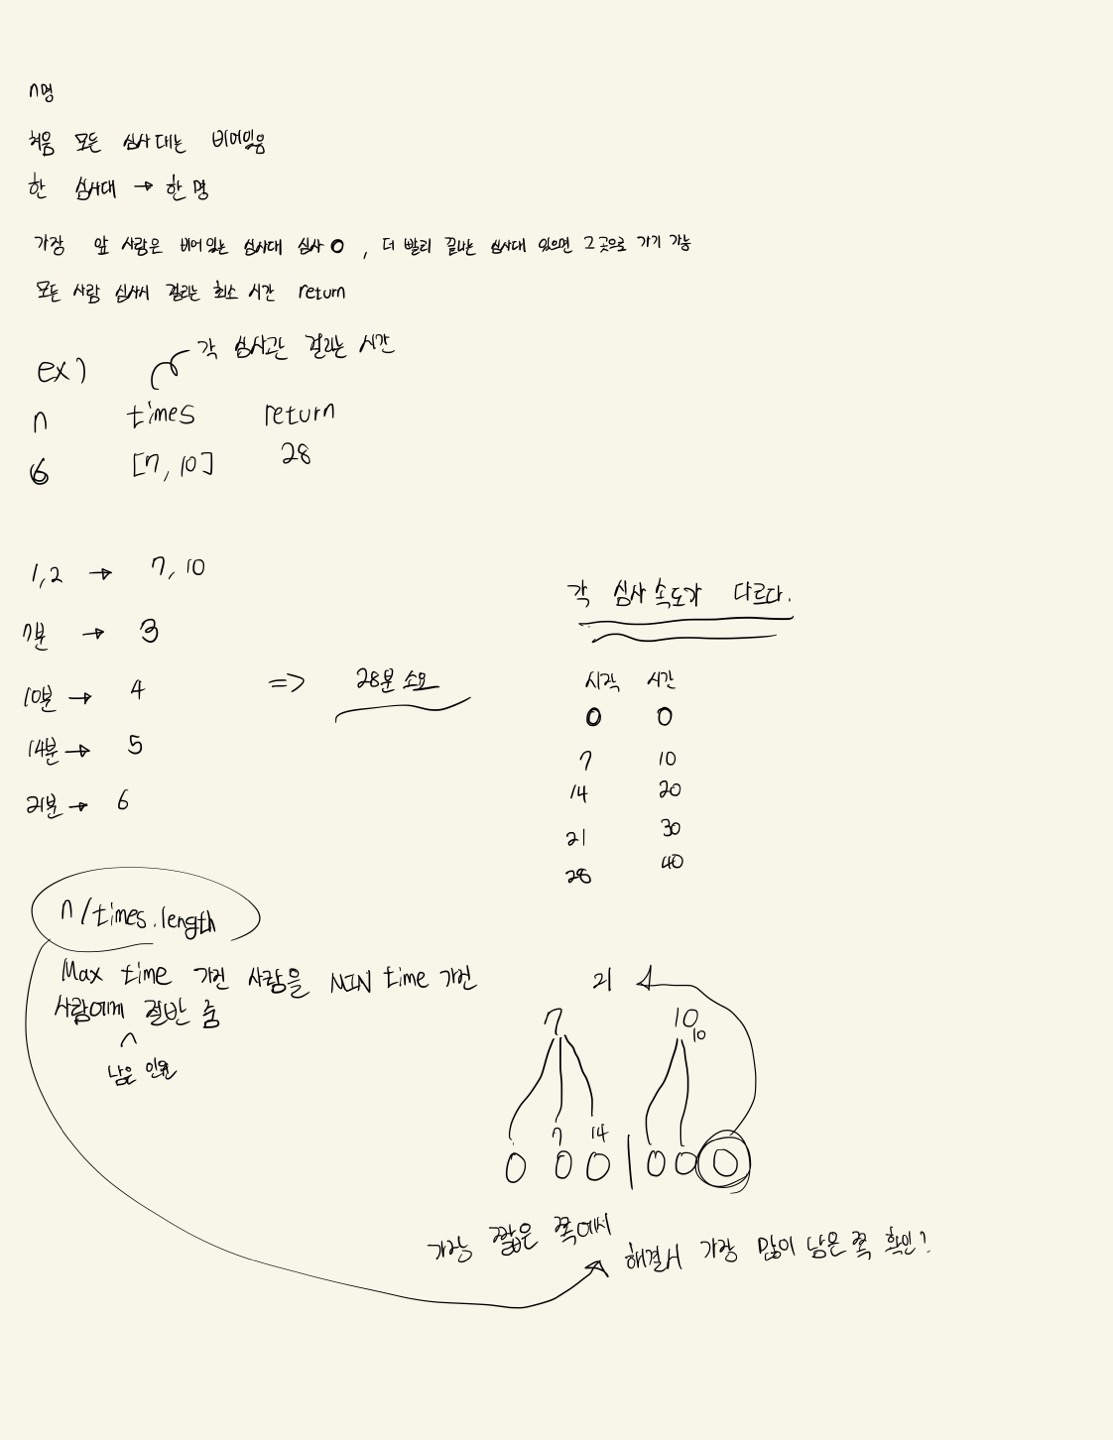 n명
처음 모든 심사대는 비어있음
한 심사대 → 한 명
가장 앞 사람은 비어있는 심사대 심사 O , 더 빨리 끝나는 심사대 있으면 그곳으로 가기 가능
모든 사람 심사시 걸리는 최소 시간 return
각 심사관 걸리는 시간
ex)
n times return
6 [7, 10] 28
1,2 → 7, 10
7분 → 3
10분 → 4
14분 → 5
21분 → 6
=> 28분 소요
각 심사 속도가 다르다.
시각 시간
0 0
7 10
14 20
21 30
28 40
n/times.length
Max time 가진 사람을 MIN time 가진
사람에게 절반 줌
^
남은 인원
21
7 10
10
7 14
0 0 0 | 0 0 0
가장 짧은 쪽에서
해결시 가장 많이 남은 쪽 확인?